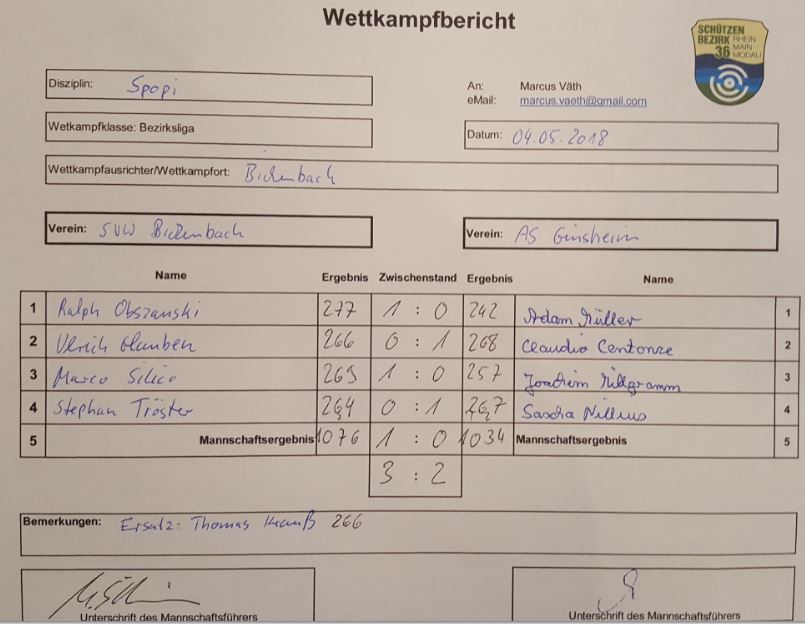 Wettkampfbericht
SCHÜTZEN
BEZIRK RHEIN
36 MAIN
MODAU
Disziplin: Spopi
An: Marcus Väth
eMail: marcus.vaeth@gmail.com
Wetkampfklasse: Bezirksliga
Datum: 04.05.2018
Wettkampfausrichter/Wettkampfort: Bickenbach
Verein: SVW Bickenbach
Verein: AS Ginsheim
Name Ergebnis Zwischenstand Ergebnis Name
1 Ralph Obszanski 277 1 : 0 242 Adam Müller 1
2 Ulrich Glauben 266 0 : 1 268 Claudio Centonze 2
3 Marco Silico 269 1 : 0 257 Joachim 3
4 Stephan Tröster 264 0 : 1 267 Sascha Nillius 4
5 Mannschaftsergebnis 1076 1 : 0 1034 Mannschaftsergebnis 5
3 : 2
Bemerkungen: Ersatz: Thomas Krauß 266
Unterschrift des Mannschaftsführers
Unterschrift des Mannschaftsführers